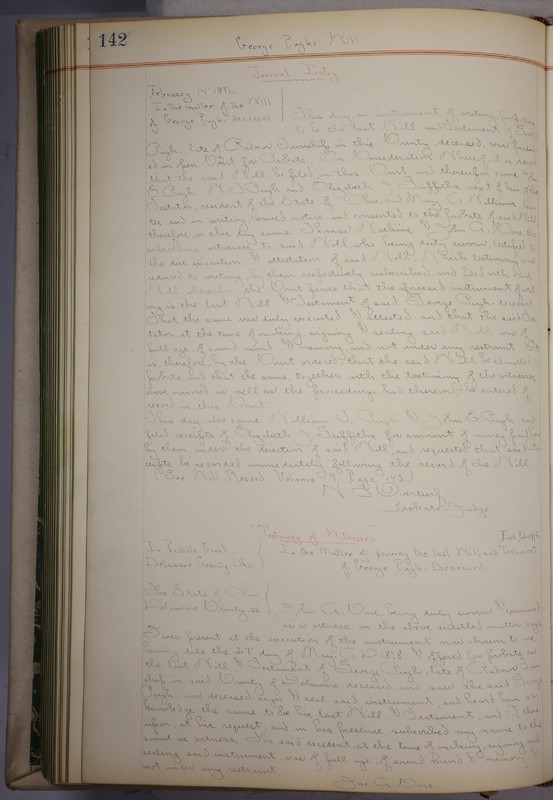 142
George Pugh's Will
Journal Entry
February 14" 1881.
In the matter of the Will
of George Pugh, deceased
This day, an instrument of writing, purporting
to be the last Will and Testament of George
Pugh, late of Radnor Township in this County, deceased, was
ed in open Court for Probate. On Consideration Whereof, it is ordered
that the said Will be filed in this Court, and thereupon came John
E Pugh, W J Pugh and Elizabeth J Griffiths next of kin of the
Testator, resident of the State of Ohio, and Mary A Williams,
and in writing waived notice and consented to the probate of said Will
therefore, on this day came Thomas & John A. Cone the
subscribing witnesses to said Will, who being duly sworn, testified to
the due execution & attestation of said Will. Which testimony was
reduced to writing, by them respectively subscribed, and filed with said
Will whereupon the Court finds that the aforesaid instrument of writ
ing is the last Will & Testament of said George Pugh deceased
That the same was duly executed & attested, and that the said Tes
tator at the time of making, signing & sealing said Will, was of
full age, of sound mind & memory, and not under any restraint. It
is, therefore, by the Court ordered that the said Will be admitted to
probate, and that the same, together with the testimony of the witnesses
above named as well as the proceedings had thereon be entered of
record in this Court.
This day also came William J. Pugh & John E. Pugh and
filed receipts of Elizabeth J Griffiths for amount of money paid her
by them under the direction of said Will, and requested that said re
ceipts be recorded immediately following the record of the Will
(See Will Record Volume Page 43.)
Overturf
Probate Judge
"Testimony of Witnesses"
In Probate Court
Delaware County Ohio
In the Matter of proving the last Will and Testament
of George Pugh. Deceased.
The State of Ohio
Delaware County ss
John A. Cone being duly sworn & examined
as a witness in the above entitled matter, says
I was present at the execution of the instrument now shown to me
bearing date the 27" day of May A.D 1878 & offered for probate as
the last Will & Testament of George Pugh, late of Radnor Town
ship, in said County of Delaware, deceased, and saw the said George
Pugh, now deceased sign & seal said instrument, and heard him ac
knowledge the same to be his last Will & Testament, and I there
upon, at his request, and in his presence, subscribed my name to the
same as witness. The said decedent, at the time of making, signing and
sealing said instrument, was of full age, of sound mind & memory &
not under any restraint.
Jno A. Cone